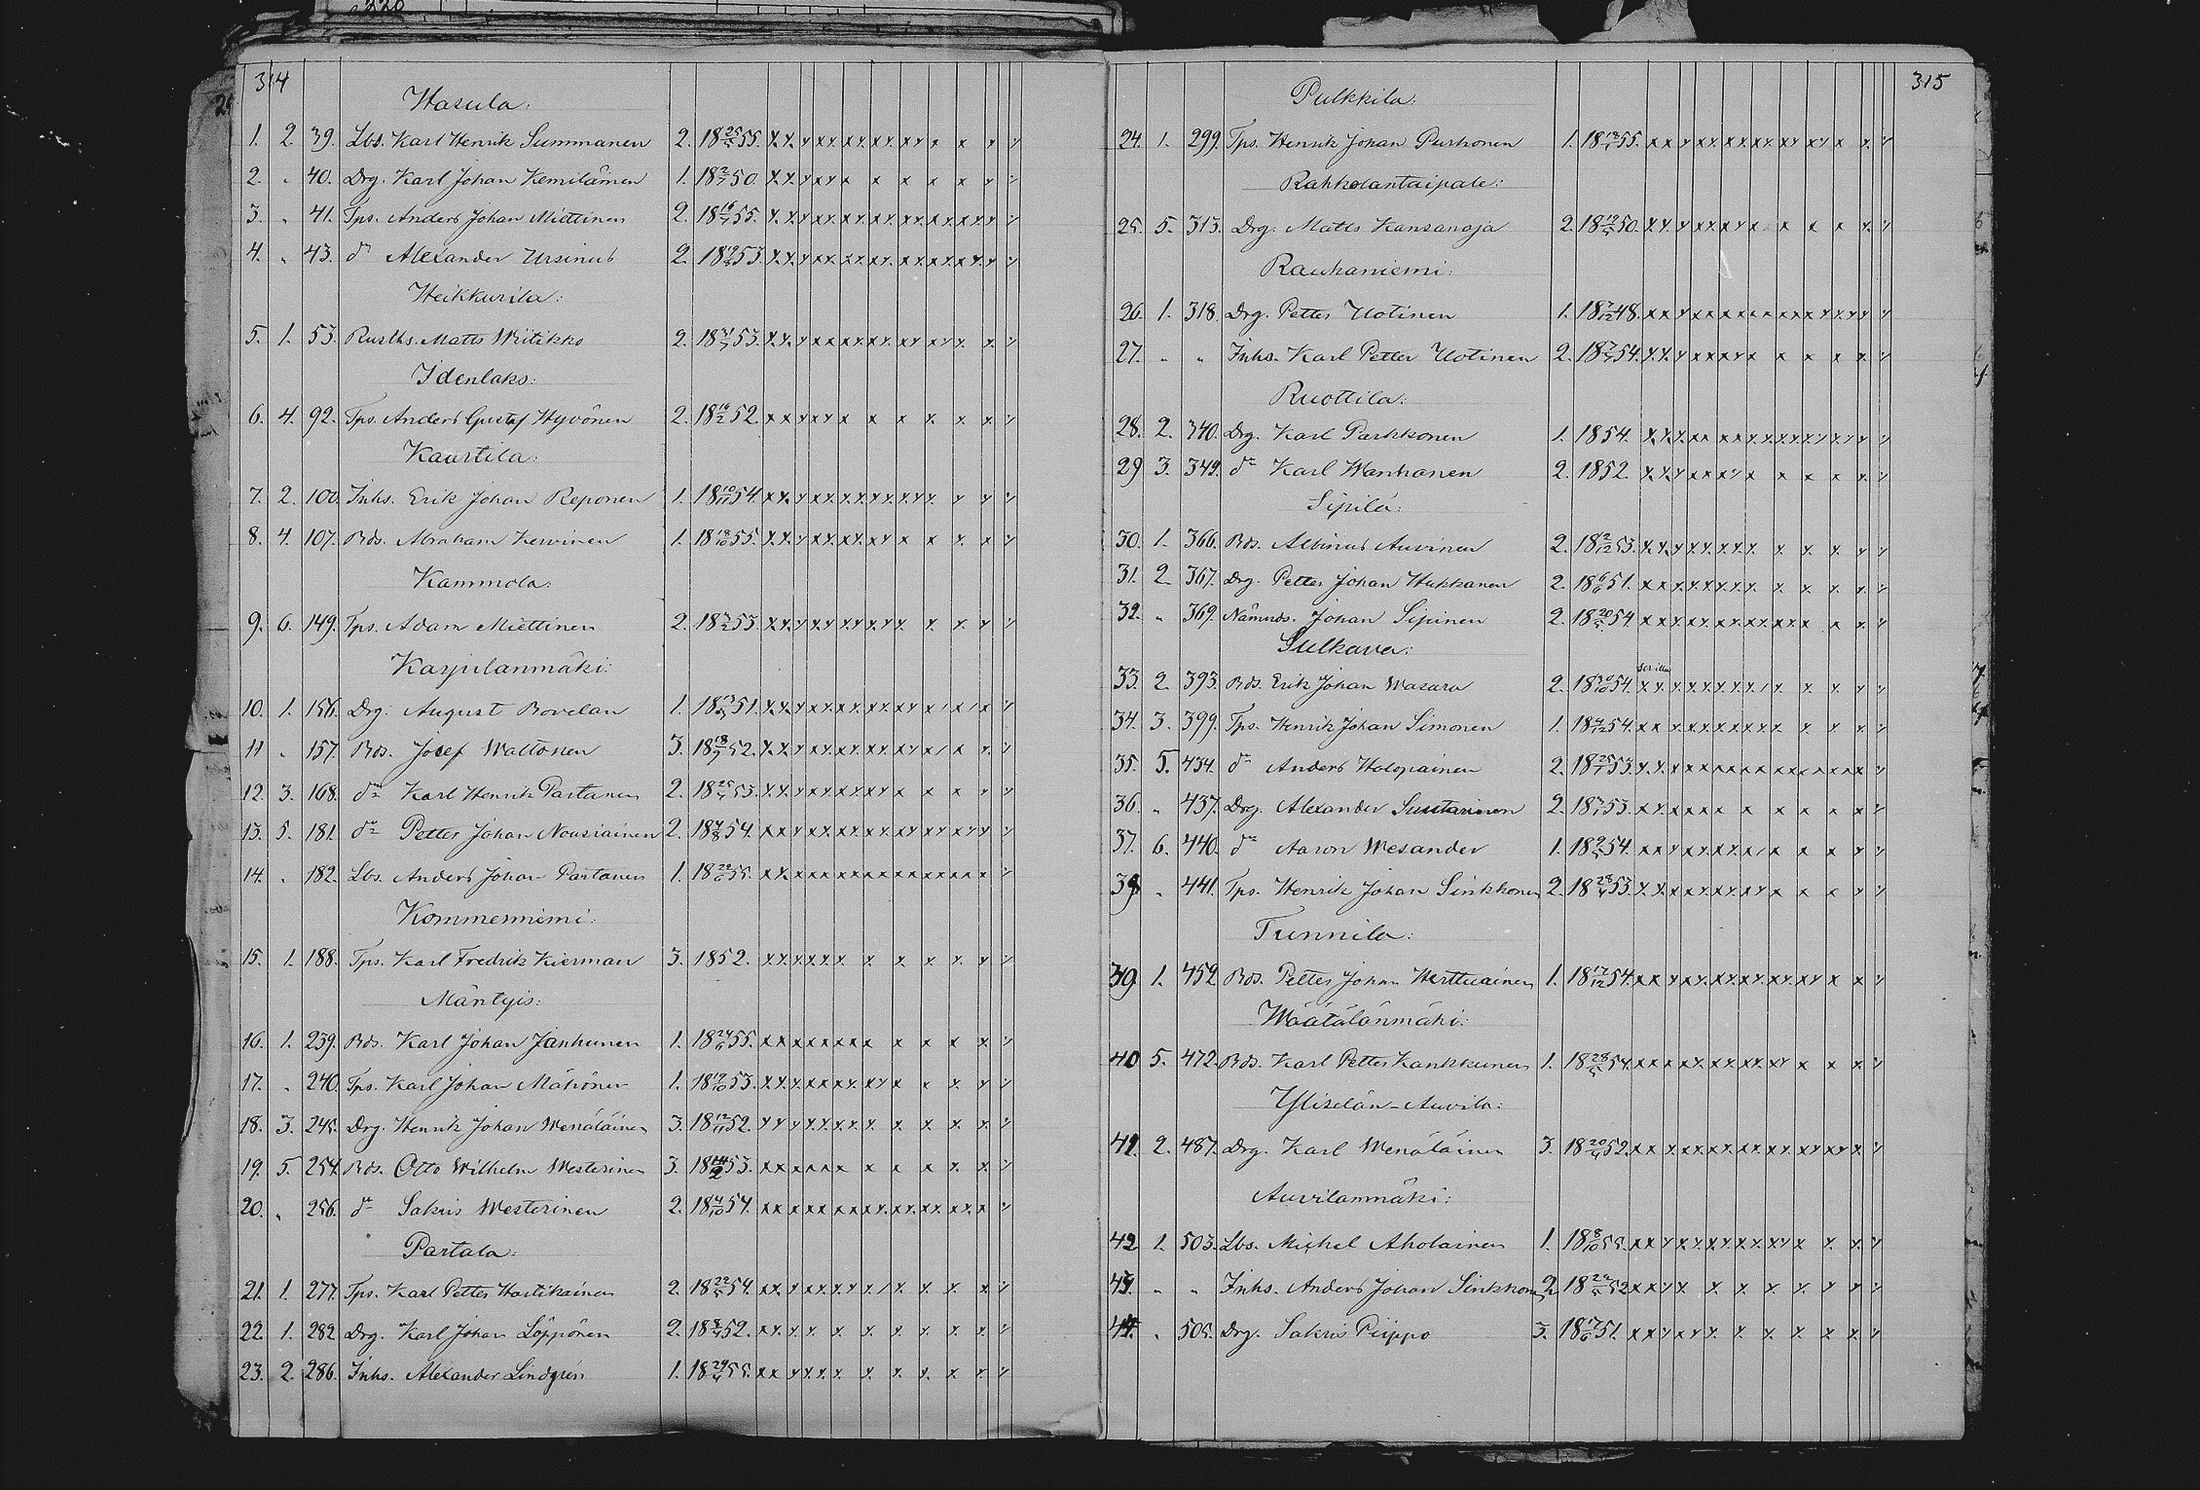 220
314
Hasula:
1. 2. 39. Lbs. Karl Henrik Summanen 2. 18 25/5 55. x x x x x x x x x x x x x
2. " 40. Drg. Karl Johan Kemiläinen 1. 18 2/7 50. x x x x x x x x x x x x
3. " 41. Tps. Anders Johan Miettinen 2. 18 55. x x x x x x x x x x x x x x x x
4. " 43. d:o Alexander Ursinus 2. 18 53. x x x x x x x x x x x x x x x x
Heikkurila:
5. 1. 53. Rusths. Matts Wiitikko 2. 18 53. x x x x x x x x x x x x x x
Idenlaks:
6. 4. 92. Tps. Anders Gustaf Hyvönen 2. 18 16/2 52. x x x x x x x x x x x
Kaartila:
7. 2. 100. Inhs. Erik Johan Reponen 1. 18 10/11 54. x x x x x x x x x x x x x
8. 4. 107. Bds. Abraham Kervinen 1. 18 55. x x x x x x x x x x x x
Kammola:
9. 6. 149. Tps. Adam Miettinen 2. 18 53. x x x x x x x x x x x x x
Karjulanmäki:
10. 1. 156. Drg. August Bovelan 1. 18 51. x x x x x x x x x x x x x
11 " 157. Bds. Josef Waltonen 3. 18 52. x x x x x x x x x x x x x
12. 3. 168. d:o Karl Henrik Partanen 2. 18 25/5 53. x x x x x x x x x x x x x
13. 5. 181. d:o Petter Johan Nousiainen 2. 18 4/8 54. x x x x x x x x x x x x x x x
14. " 182. Lbs. Anders Johan Partanen 1. 18 22/6 55. x x x x x x x x x x x x x x x
Kommerniemi:
15. 1. 188. Tps. Karl Fredrik Kierman 3. 1852. x x x x x x x x x x x x
Mäntyis:
16. 1. 239. Bds. Karl Johan Janhunen 1. 18 24/6 55. x x x x x x x x x x x x x
17. " 240. Tps. Karl Johan Mähönen 1. 18 53. x x x x x x x x x x x x x
18. 3. 245. Drg. Henrik Johan Wenäläinen 3. 18 12/11 52. x x x x x x x x x x x x
19. 5. 254. Bds. Otto Wilhelm Westerinen 3. 18 53. x x x x x x x x x x x x
20. " 256. d:o Sakris Westerinen 2. 18 4/10 54. x x x x x x x x x x x x x x
Partala:
21. 1. 277. Tps. Karl Petter Hartikainen 2. 18 22/5 54. x x x x x x x x x x x x x
22. 1. 282. Drg. Karl Johan Löppönen 2. 18 52. x x x x x x x x x x x
23. 2. 286. Inhs. Alexander Lindgrén 1. 18 55. x x x x x x x x x x x
315
Pulkkila:
24. 1. 299. Tps. Henrik Johan Purhonen 1. 18 55. x x x x x x x x x x x x x
Rahkolantaipale:
25. 5. 313. Drg. Matts Kansanoja 2. 18 50. x x x x x x x x x x x x
Rauhaniemi:
26. 1. 318. Drg. Petter Uotinen 1. 18 48. x x x x x x x x x x x x x x x
27. " " Inhs. Karl Petter Uotinen 2. 18 54. x x x x x x x x x x x x
Ruottila:
28. 2. 340. Drg. Karl Parkkonen 1. 1854. x x x x x x x x x x x x x x x
29 3. 349. d:o Karl Wanhanen 2. 1852. x x x x x x x x x x x x
Sipilä:
30. 1. 366. Bds. Albinus Auvinen 2. 18 2/12 53. x x x x x x x x x x x x
31. 2. 367. Drg. Petter Johan Hukkanen 2. 18 51. x x x x x x x x x x x x
32. " 369. Nämnds. Johan Sipinen 2. 18 54. x x x x x x x x x x x x x
Sulkava:
33. 2. 393. Bds. Erik Johan Wasara 2. 18 54. x x x x x x x x x x x x x
34. 3. 399. Tps. Henrik Johan Simonen 1. 18 54. x x x x x x x x x x x x x
35. 5. 434. d:o Anders Holopainen 2. 18 53. x x x x x x x x x x x x x x x
36. " 437. Drg. Alexander Suutarinen 2. 18 53. x x x x x x x x x x x
37. 6. 440. d:o Aaron Wesander 1. 18 54. x x x x x x x x x x x x
38. " 441. Tps. Henrik Johan Sinkkonen 2. 18 53. x x x x x x x x x x x x x
Tunnila:
39 1. 452 Bds. Petter Johan Herttuainen 1. 18 17/12 54. x x x x x x x x x x x x x x
Määtälänmäki:
40 5. 472. Bds. Karl Petter Kankkunen 1. 18 54. x x x x x x x x x x x x x
Yliselän-Auvila:
41. 2. 487. Drg. Karl Wenäläinen 3. 18 52. x x x x x x x x x x x x x x x
Auvilanmäki:
42 1. 503. Lbs. Michel Aholainen 1. 18 8/10 55. x x x x x x x x x x x x x
43. " " Inhs. Anders Johan Sinkkonen 2. 18 52. x x x x x x x x x x
44. " 505. Drg. Sakris Piippo 3. 18 51. x x x x x x x x x x x